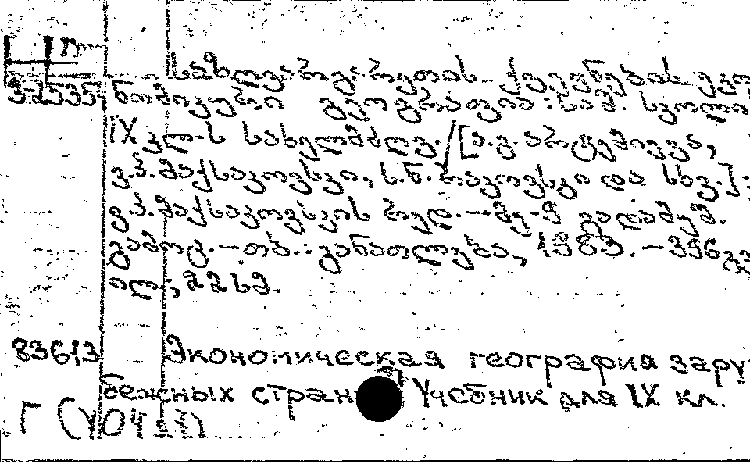 საზღვარგარეთის ქვეყნების ეკო
ნომიკური გეოგრაფია : საშ. სკოლი
IX კლ-ს სახელმძღვ. / [ა. გ. არტემიევა,
ვ. პ. მაქსაკოვსკი, ს. ნ. რაკოვსკი და სხვ.];
ვ. პ. მაქსაკოვსკის რედ. - მე-9 გადამუშ.
გამოც. - თბ. : განათლება, 1983. - 336 გვ.
ილ.; 22 სმ.
836/3 Экономическая география зару
бежных стран Учебник для IX кл.